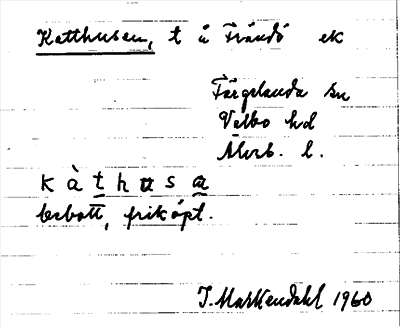 Katthusen, t å Frändö ek
Färgelanda sn
Valbo hd
Älvsb. l.
k à t h u s a
bebott, friköpt.
J. Markendahl 1960